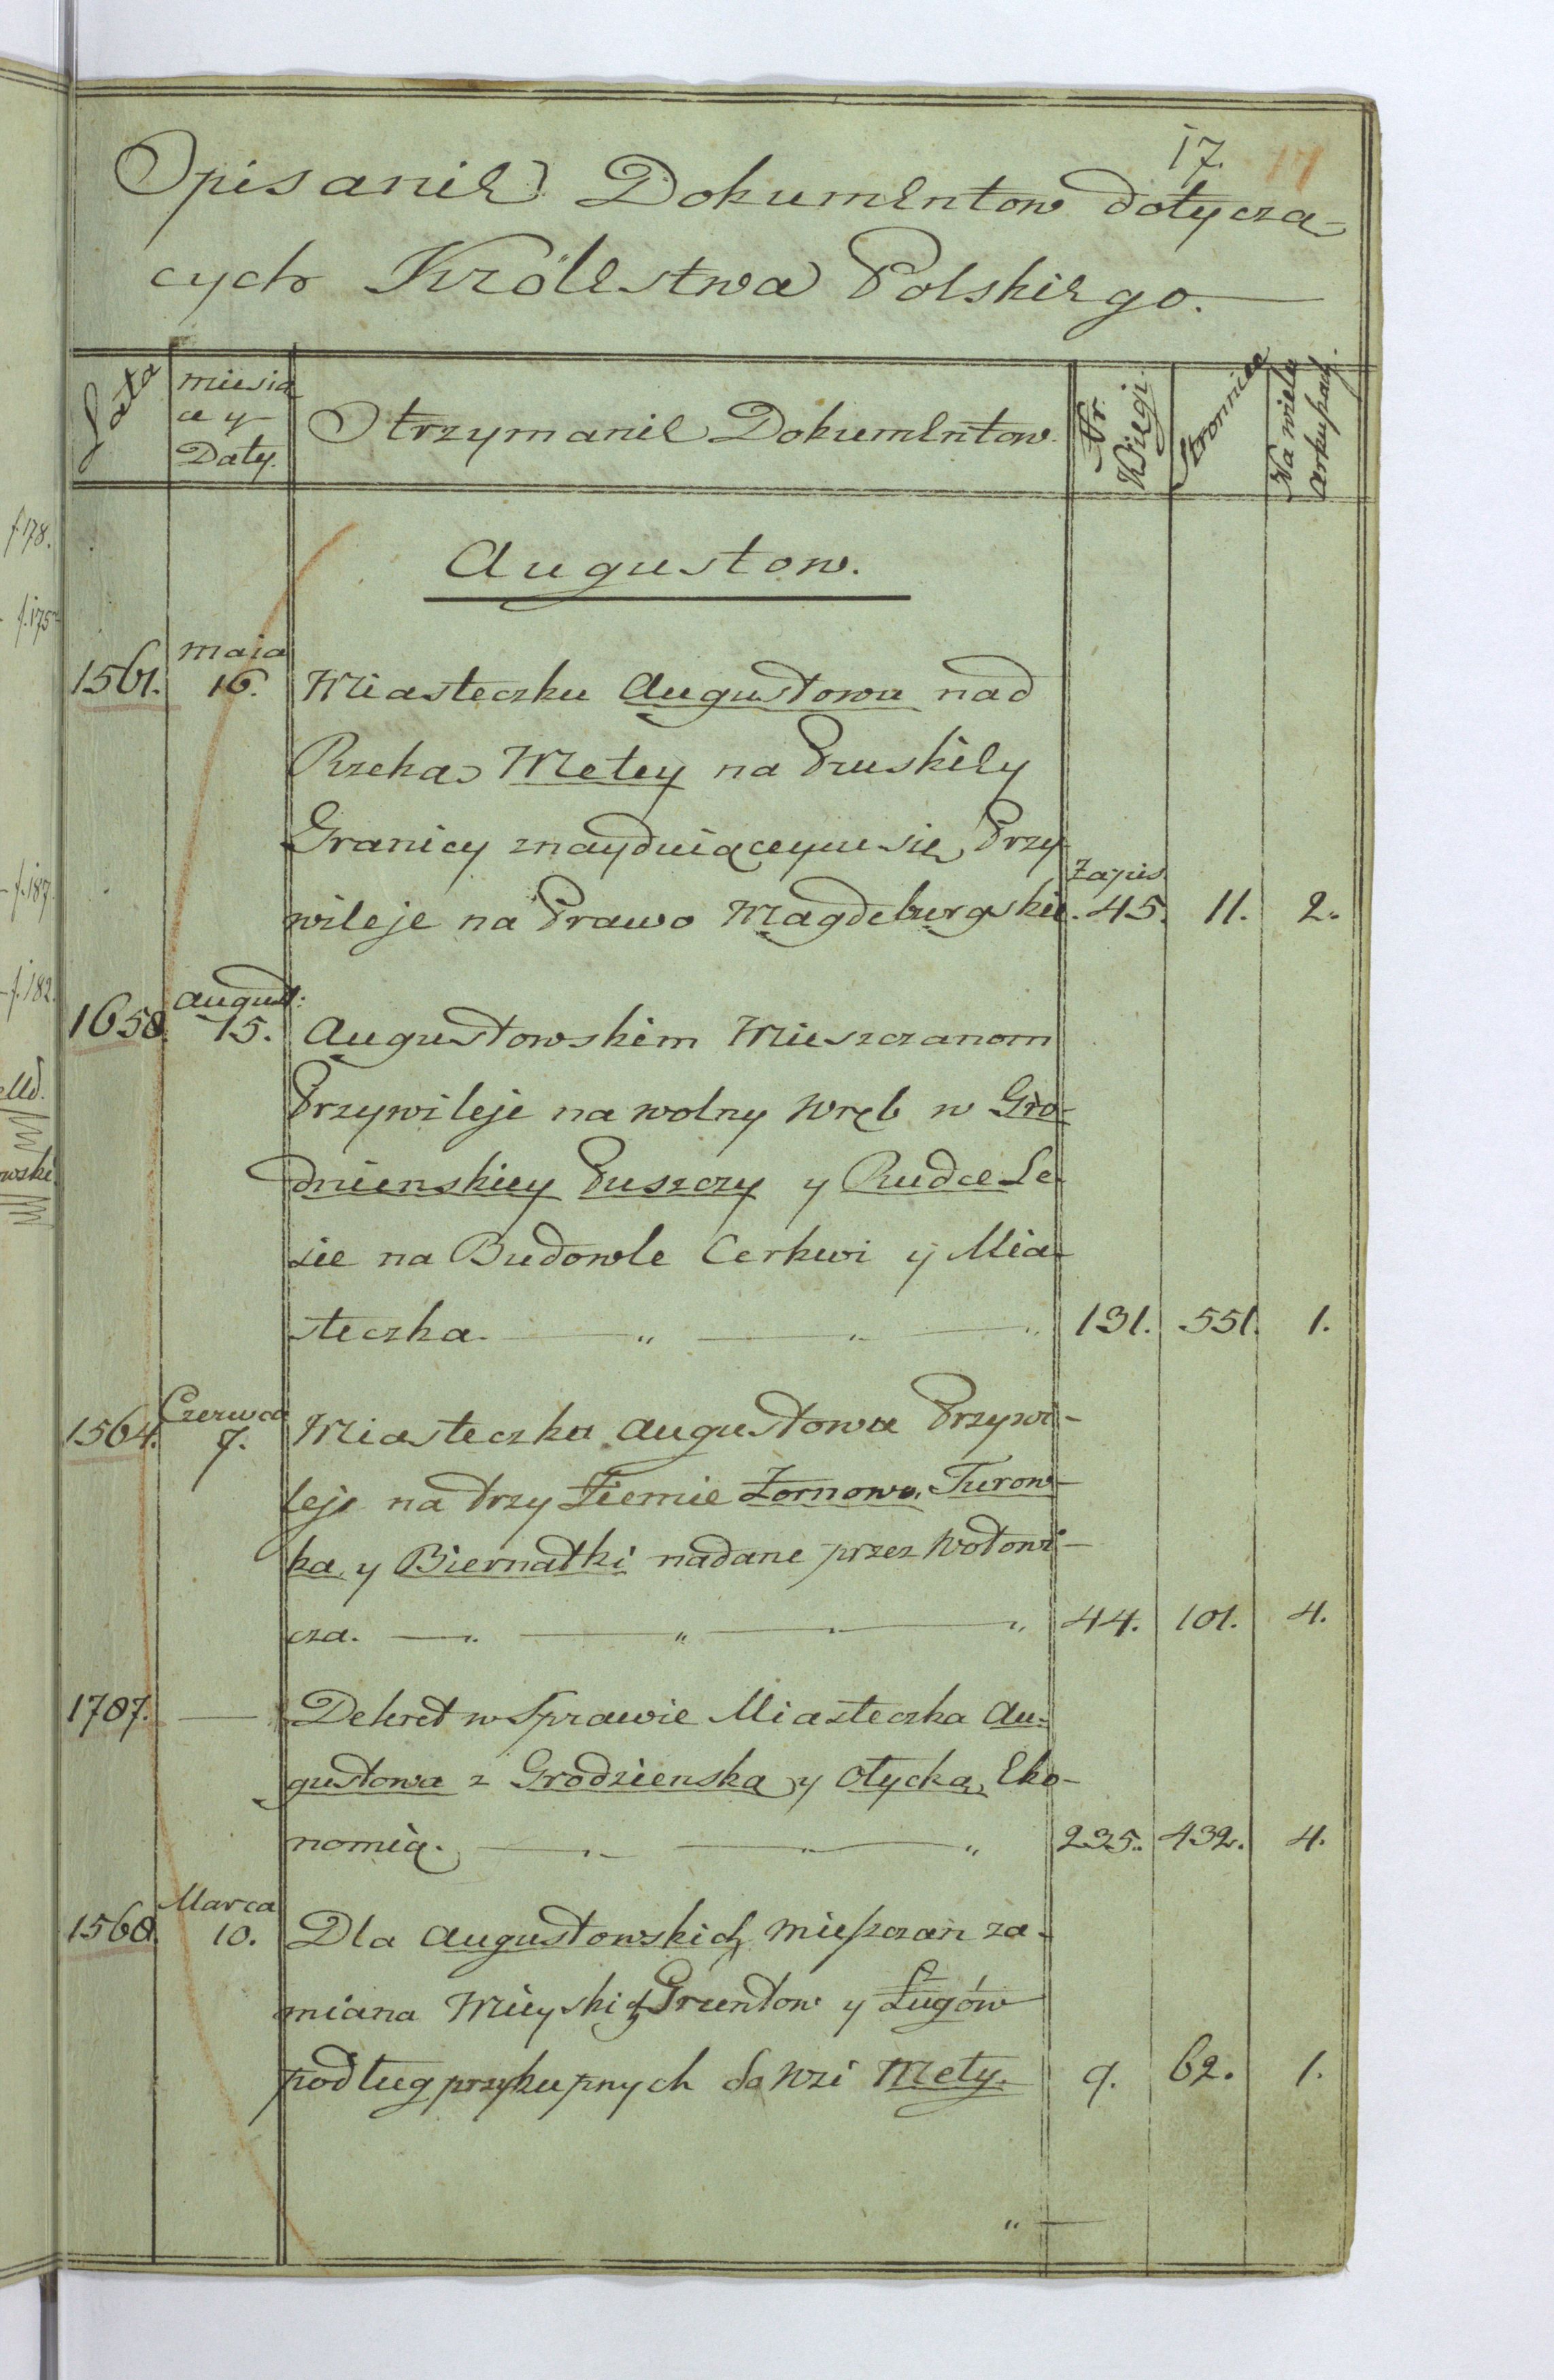 17. 17
Opisanie Dokumentow dotycza-
cych Królestwa Polskiego.
Lata
miesią
ce y
Daty.
Otrzymanie Dokumentow.
Nr.
Księgi.
Stronnica
Na wielu
Augustow.
1561. maia 16. Miasteczku Augustowu nad
Rzeka Metey na Pruskiey
Granicy znayduiącymu się Przy
wileje na Prawo Magdeburgskie. Zapis 45. 11. 2.
1658. August: 15. Augustowskim Mieszczanom
Przywileje na wolny Wręb w Gro-
dnienskiey Puszczy y Rudce Le-
sie na Budowle Cerkwi y Mia-
steczka. 131. 551. 1.
1564. Czerwca 7. Miasteczku Augustowu Przywi-
leje na trzy Ziemie Żornowo, Turow-
ka, y Biernatki nadane przez Wołowi-
cza. 44. 101. 4.
1787. Dekret w Sprawie Miasteczka Au-
gustowa z Grodzienska y Olycką Eko-
nomią. 235. 432. 4.
1568. Marca 10. Dla Augustowskich mieszczan za-
miana Mieyskich Gruntow y Ługów
podług przykupnych do Wsi Mety. 9. 62. 1.
f.178.
f.175
f.187.
f.182.